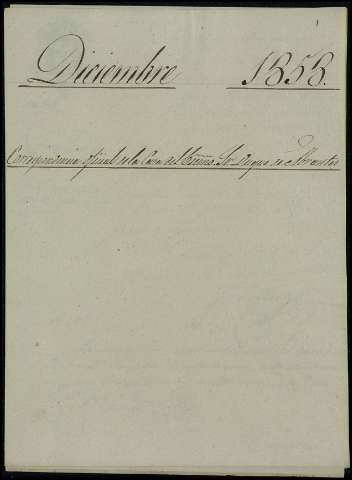 Diciembre 1858.
Correspondencia oficial de la Casa del Excmo. Sr. Duque de Abrantes